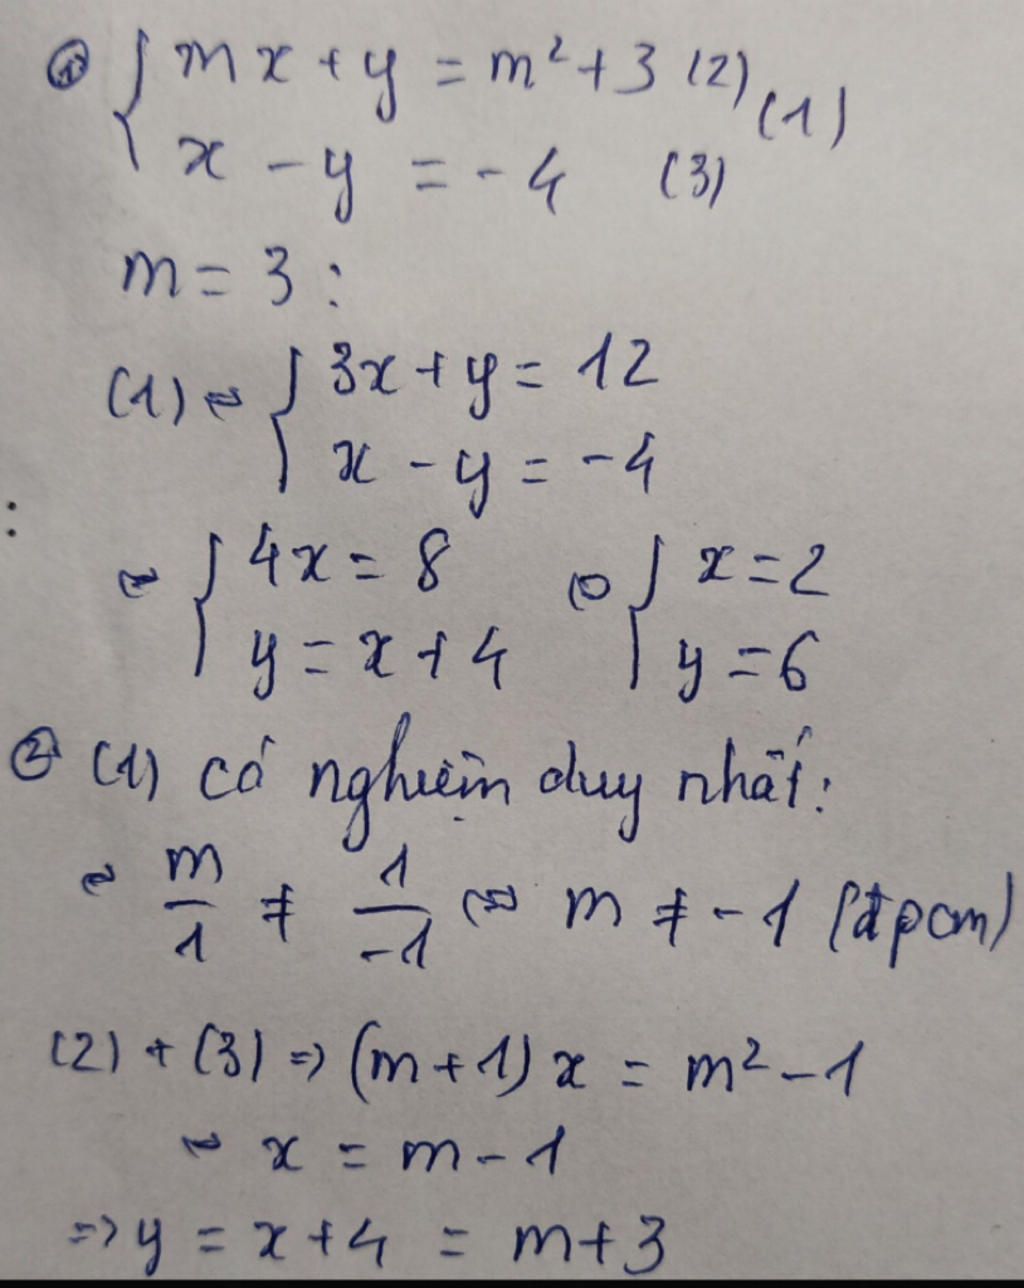 ① { mx + y = m² + 3 (2)
x - y = -4 (3) (1)
m = 3 :
(1) ⇔ { 3x + y = 12
x - y = -4
⇔ { 4x = 8 ⇔ { x = 2
y = x + 4 y = 6
② (1) có nghiệm duy nhất:
⇔ m/1 ≠ 1/-1 ⇔ m ≠ -1 (đpcm)
(2) + (3) => (m + 1) x = m² - 1
⇔ x = m - 1
=> y = x + 4 = m + 3